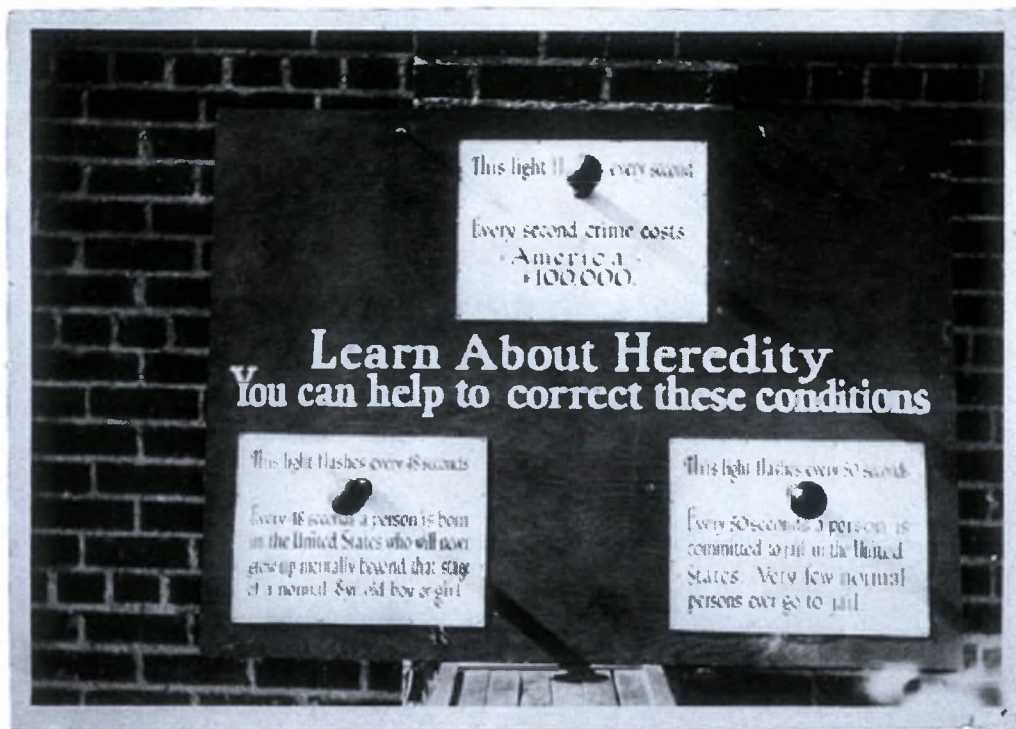 This light every second
Every second crime costs
America
$100,000.
Learn About Heredity
You can help to correct these conditions
This light flashes every 48 seconds
Every 48 seconds a person is born
in the United States who will never
grow up mentally beyond that stage
of a normal 8 yr old boy or girl
This light flashes every 50 seconds
Every 50 seconds a person is
committed to jail in the United
States. Very few normal
persons ever go to jail.